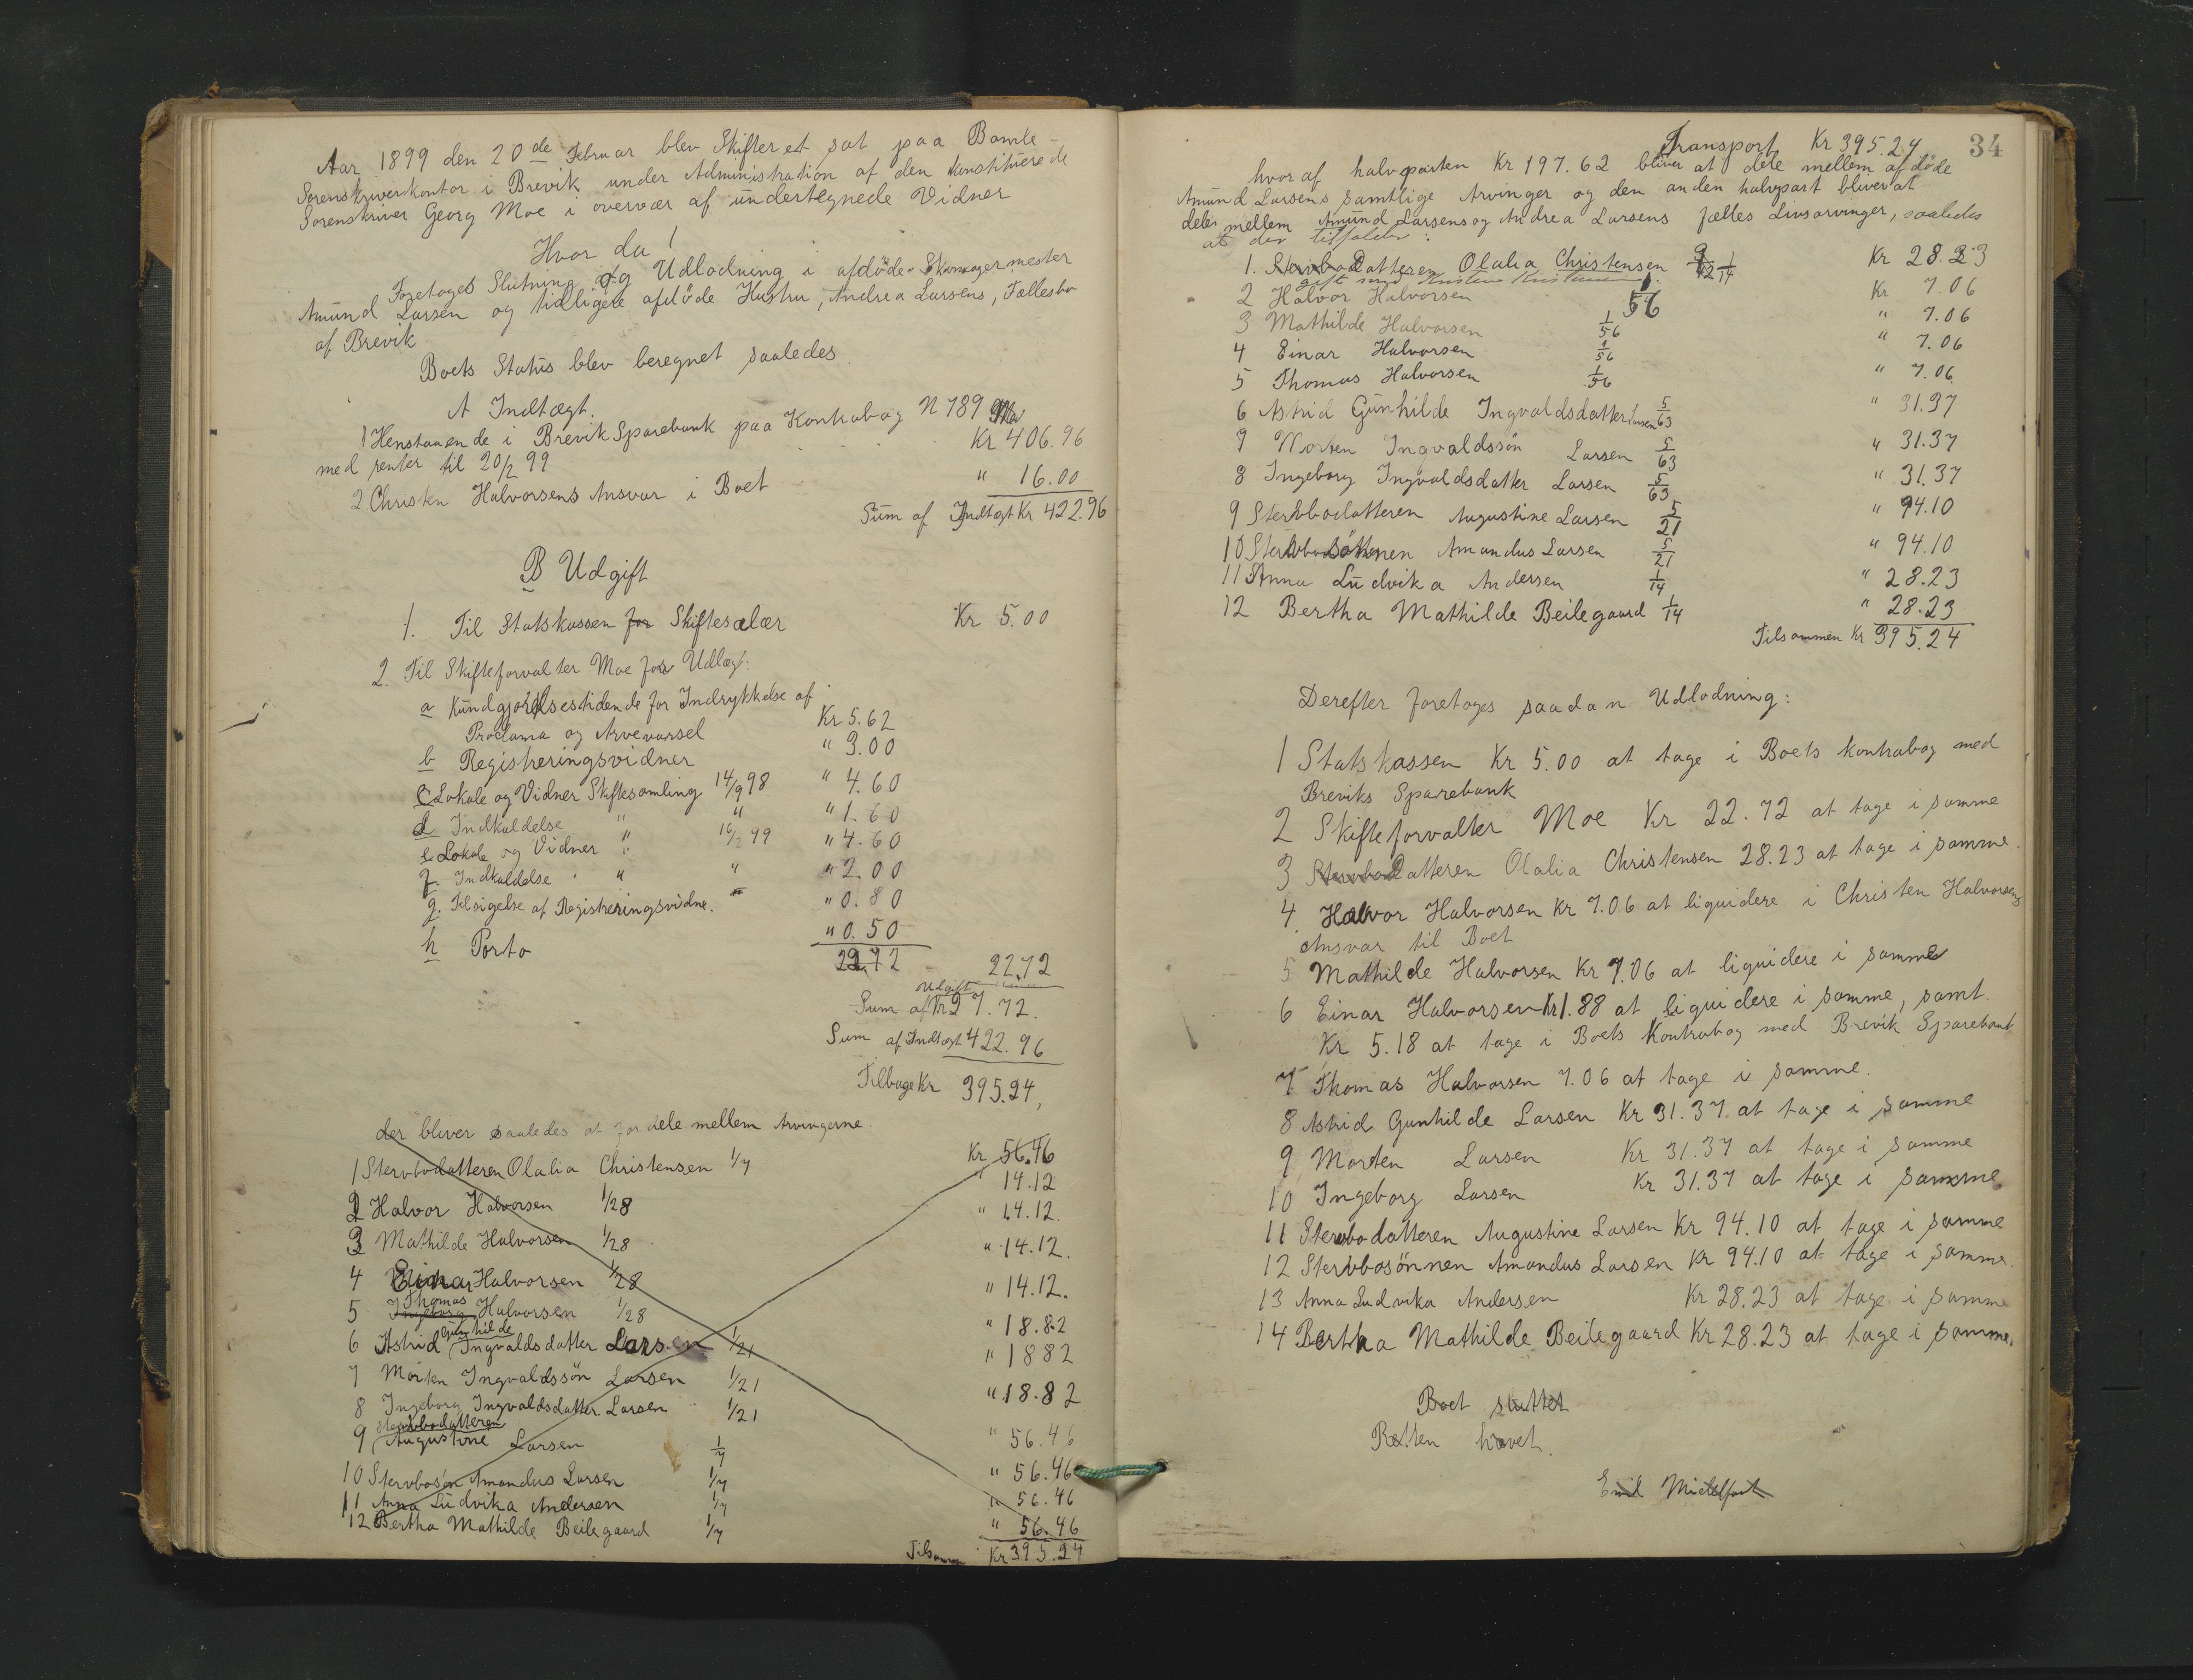 Aar 1899 den 20de Februar blev Skifteret sat paa Bamle
Sorenskriverkontor i Brevik under Administration af den konstituerede
Sorenskriver Georg Moe i overvær af undertegnede Vidner
Hvor da!
Foretoges Slutning og Udlodning i afdöde Skomagermester
Amund Larsen og tidligere afdöde Hustru, Andrea Larsens, Fællesbo
af Brevik.
Boets Status blev beregnet saaledes.
A Indtægt.
1 Henstaaende i Brevik Sparebank paa Kontrabog N 789
med renter til 20/2 99 Kr 406.96
2 Christen Halvorsens Ansvar i Boet " 16.00
Sum af Indtægt Kr 422.96
B Udgift
1. Til Statskassen for Skiftesalær Kr 5.00
2. Til Skifteforvalter Moe for Udlæg:
a Kundgjörelsestidende for Indrykkelse af
Proclama og Arvevarsel Kr 5.62
b Registreringsvidner " 3.00
c Lokale og Vidner Skiftesamling 14/9 98 " 4.60
d Indkaldelse " " " 1.60
e Lokale og Vidner " 16/2 99 " 4.60
f. Indkaldelse " " " 2.00
g. Tilsigelse af Registreringsvidne. " 0.80
h Porto " 0.50
22,72 22,72
Sum af Udgift Kr 27.72.
Sum af Indtægt 422.96
Tilbage Kr 395.24,
der bliver saaledes at fordele mellem Arvingerne.
1 Stervbodatteren Olalia Christensen 1/7 Kr 56.46
2 Halvor Halvorsen 1/28 " 14.12
3 Mathilde Halvorsen 1/28 " 14.12.
4 Einar Halvorsen 1/28 " 14.12.
5 Thomas Halvorsen 1/28 " 14.12.
6 Astrid Gunhilde Ingvaldsdatter Larsen 1/21 " 18.82
7 Morten Ingvaldssön Larsen 1/21 " 1882
8 Ingeborg Ingvaldsdatter Larsen 1/21 " 18.82
9 Stervbodatteren Augustine Larsen 1/7 " 56.46
10 Stervbosön Amandus Larsen 1/7 " 56.46
11 Anna Ludvika Andersen 1/7 " 56.46
12 Bertha Mathilde Beilegaard 1/7 " 56.46
Tilsammen Kr 395.24
34
Transport Kr 395.24
hvoraf halvparten Kr 197.62 bliver at dele mellem afdöde
Amund Larsens samtlige Arvinger og den anden halvpart bliver at
dele mellem Amund Larsens og Andrea Larsens fælles Livsarvinger, saaledes
at der tilfalder:
1. Stervbodatteren Olalia Christensen 1/14 Kr 28.23
gift med Kristen Kristensen
2 Halvor Halvorsen 1/56 Kr 7.06
3 Mathilde Halvorsen 1/56 " 7.06
4 Einar Halvorsen 1/56 " 7.06
5 Thomas Halvorsen 1/56 " 7.06
6 Astrid Gunhilde Ingvaldsdatter Larsen 5/63 " 31.37
7 Morten Ingvaldssön Larsen 5/63 " 31.37
8 Ingeborg Ingvaldsdatter Larsen 5/63 " 31.37
9 Stervbodatteren Augustine Larsen 5/21 " 94.10
10 Stervbosönnen Amandus Larsen 5/21 " 94.10
11 Anna Ludvika Andersen 1/14 " 28.23
12 Bertha Mathilde Beilegaard 1/14 " 28.23
Tilsammen Kr 395.24
Derefter foretoges saadan Udlodning:
1 Statskassen Kr 5.00 at tage i Boets kontrabog med
Breviks Sparebank
2 Skifteforvalter Moe Kr 22.72 at tage i samme
3 Stervbodatteren Olalia Christensen 28.23 at tage i samme.
4. Halvor Halvorsen Kr 7.06 at liquidere i Christen Halvorsens
Ansvar til Boet
5 Mathilde Halvorsen Kr 7.06 at liquidere i samme
6 Einar Halvorsen Kr 1.88 at liquidere i samme, samt
Kr 5.18 at tage i Boets Kontrabog med Brevik Sparebank
7 Thomas Halvorsen 7.06 at tage i samme.
8 Astrid Gunhilde Larsen Kr 31.37 at tage i samme
9 Morten Larsen Kr 31.37 at tage i samme
10 Ingeborg Larsen Kr 31.37 at tage i samme
11 Stervbodatteren Augustine Larsen Kr 94.10 at tage i samme
12 Stervbosönnen Amandus Larsen Kr 94.10 at tage i samme.
13 Anna Ludvika Andersen Kr 28.23 at tage i samme
14 Bertha Mathilde Beilegaard Kr 28.23 at tage i samme.
Boet sluttet
Retten hævet.
Emil Midelfart